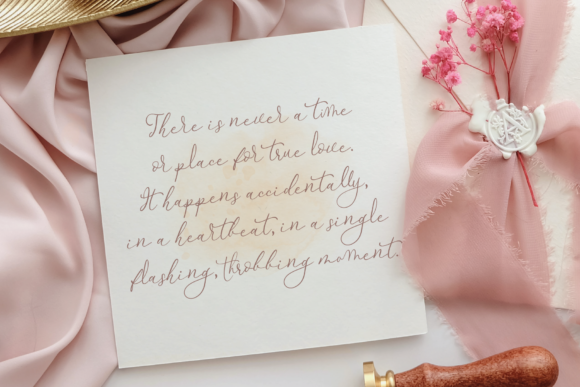 There is never a time
or place for true love.
It happens accidentally,
in a heartbeat, in a single
flashing, throbbing moment.